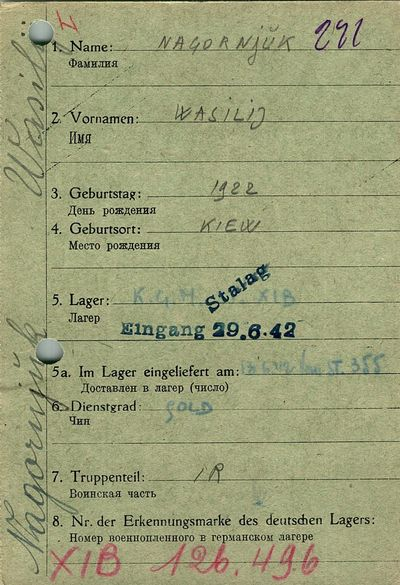 Nagornjuk Wasil
1. Name: NAGORNJŬK 272
Фамилия
2. Vornamen: WASILIJ
Имя
3. Geburtstag: 1922
День рождения
4. Geburtsort: KIEW
Место рождения
Stalag
5. Lager: XIB
Лагер
Eingang 29.6.42
5a. Im Lager eingeliefert am: ST. 355
Доставлен в лагер (число)
6. Dienstgrad: SOLD
Чин
7. Truppenteil: IR
Воинская часть
8. Nr. der Erkennungsmarke des deutschen Lagers:
Номер военнопленного в германском лагере
XIB 126.496